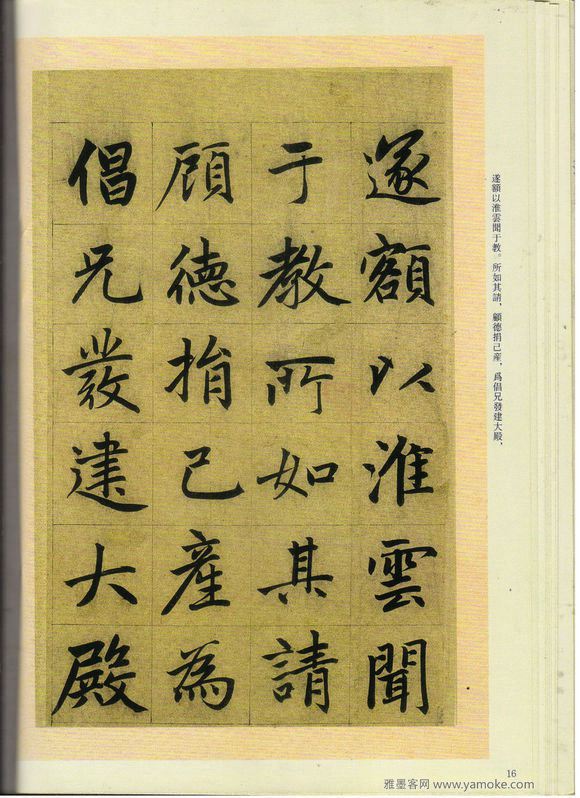 遂額以淮雲聞
于教所如其請
顧德捐己產為
倡兄發建大殿
遂額以淮雲聞于教。所如其請，顧德捐己産，爲倡兄發建大殿、
16
雅墨客网 www.yamoke.com